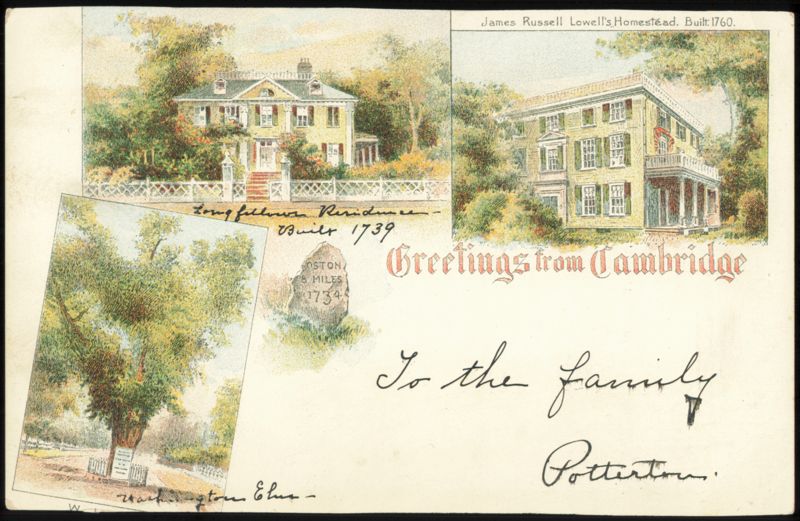 James Russell Lowell's Homestead. Built 1760.
Longfellows Residence—
Built 1739
BOSTON
8 MILES
1734
Greetings from Cambridge
To the family
Potterton.
Washington Elm—